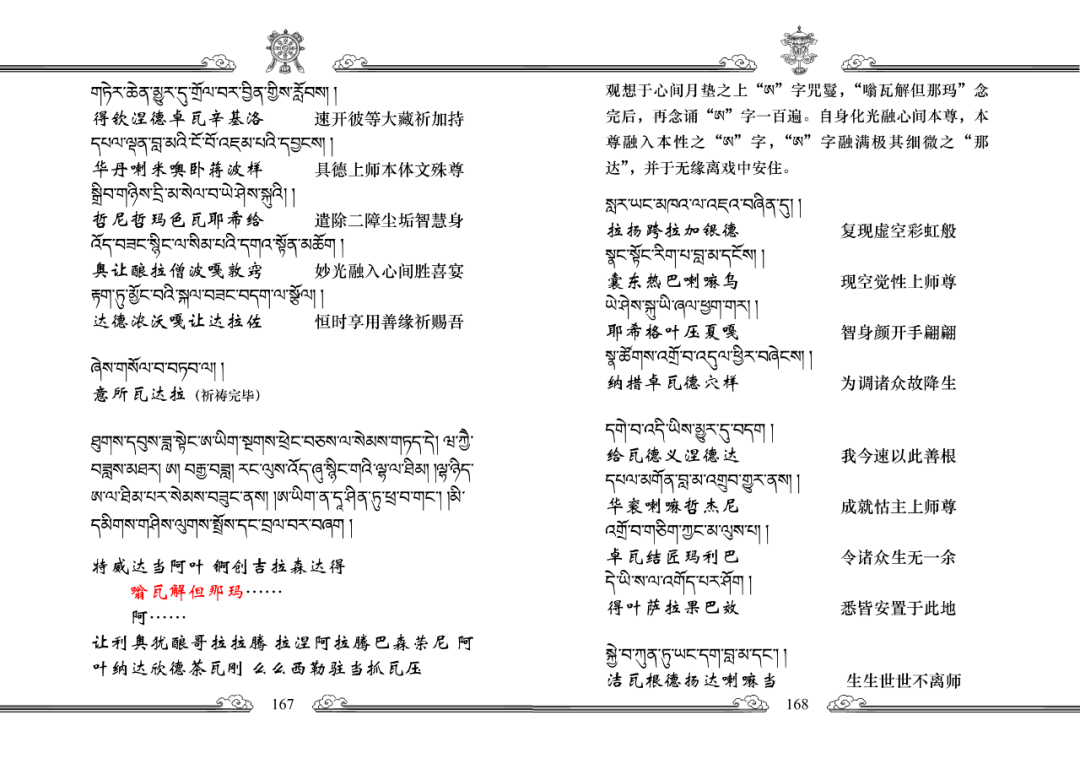 གཏེར་ཆེན་མྱུར་དུ་གྲོལ་བར་བྱིན་གྱིས་རློབས། །
得钦涅德卓瓦辛基洛 速开彼等大藏祈加持
དཔལ་ལྡན་བླ་མའི་ངོ་བོ་འཇམ་པའི་དབྱངས། །
华丹喇米噢卧蒋波样 具德上师本体文殊尊
སྒྲིབ་གཉིས་དྲི་མ་སེལ་བ་ཡེ་ཤེས་སྐུའི། །
哲尼哲玛色瓦耶希给 遣除二障尘垢智慧身
འོད་བཟང་སྙིང་ལ་སིམ་པའི་དགའ་སྟོན་མཆོག །
奥让酿拉僧波嘎敦窍 妙光融入心间胜喜宴
རྟག་ཏུ་མྱོང་བའི་སྐལ་བཟང་བདག་ལ་སྩོལ། །
达德浓沃嘎让达拉佐 恒时享用善缘祈赐吾
ཞེས་གསོལ་བ་བཏབ་ལ། །
意所瓦达拉（祈祷完毕）
ཐུགས་དབུས་ཟླ་སྟེང་ཨ་ཡིག་སྔགས་ཕྲེང་བཅས་ལ་སེམས་གཏད་དེ། ཝ་ཀྱཻ་
བཟླས་མཐར། ཨ། བརྒྱ་བཟླ། རང་ལུས་འོད་ཞུ་སྙིང་གའི་ལྷ་ལ་ཐིམ། །ལྷ་ཉིད་
ཨ་ལ་ཐིམ་པར་སེམས་བཟུང་ནས། །ཨ་ཡིག་ན་དཱ་ཤིན་ཏུ་ཕྲ་བ་གང་། །མི་
དམིགས་གཤིས་ལུགས་སྤྲོས་དང་བྲལ་བར་བཞག །
特威达当阿叶 锕创吉拉森达得
嗡瓦解但那玛……
阿……
让利奥犹酿哥拉拉腾 拉涅阿拉腾巴森荣尼 阿
叶纳达欣德茶瓦刚 么么西勒驻当抓瓦压
167
观想于心间月垫之上“ཨ”字咒鬘，“嗡瓦解但那玛”念
完后，再念诵“ཨ”字一百遍。自身化光融心间本尊，本
尊融入本性之“ཨ”字，“ཨ”字融满极其细微之“那
达”，并于无缘离戏中安住。
སླར་ཡང་མཁའ་ལ་འཇའ་བཞིན་དུ། །
拉扬跨拉加银德 复现虚空彩虹般
སྣང་སྟོང་རིག་པ་བླ་མ་དངོས། །
囊东热巴喇嘛乌 现空觉性上师尊
ཡེ་ཤེས་སྐུ་ཡི་ཞལ་ཕྱག་གར། །
耶希格叶压夏嘎 智身颜开手翩翩
སྣ་ཚོགས་འགྲོ་བ་འདུལ་ཕྱིར་བཞེངས། །
纳措卓瓦德穴样 为调诸众故降生
དགེ་བ་འདི་ཡིས་མྱུར་དུ་བདག །
给瓦德义涅德达 我今速以此善根
དཔལ་མགོན་བླ་མ་འགྲུབ་གྱུར་ནས། །
华衮喇嘛哲杰尼 成就怙主上师尊
འགྲོ་བ་གཅིག་ཀྱང་མ་ལུས་པ། །
卓瓦结匠玛利巴 令诸众生无一余
དེ་ཡི་ས་ལ་འགོད་པར་ཤོག །
得叶萨拉果巴效 悉皆安置于此地
སྐྱེ་བ་ཀུན་ཏུ་ཡང་དག་བླ་མ་དང་། །
洁瓦根德扬达喇嘛当 生生世世不离师
168